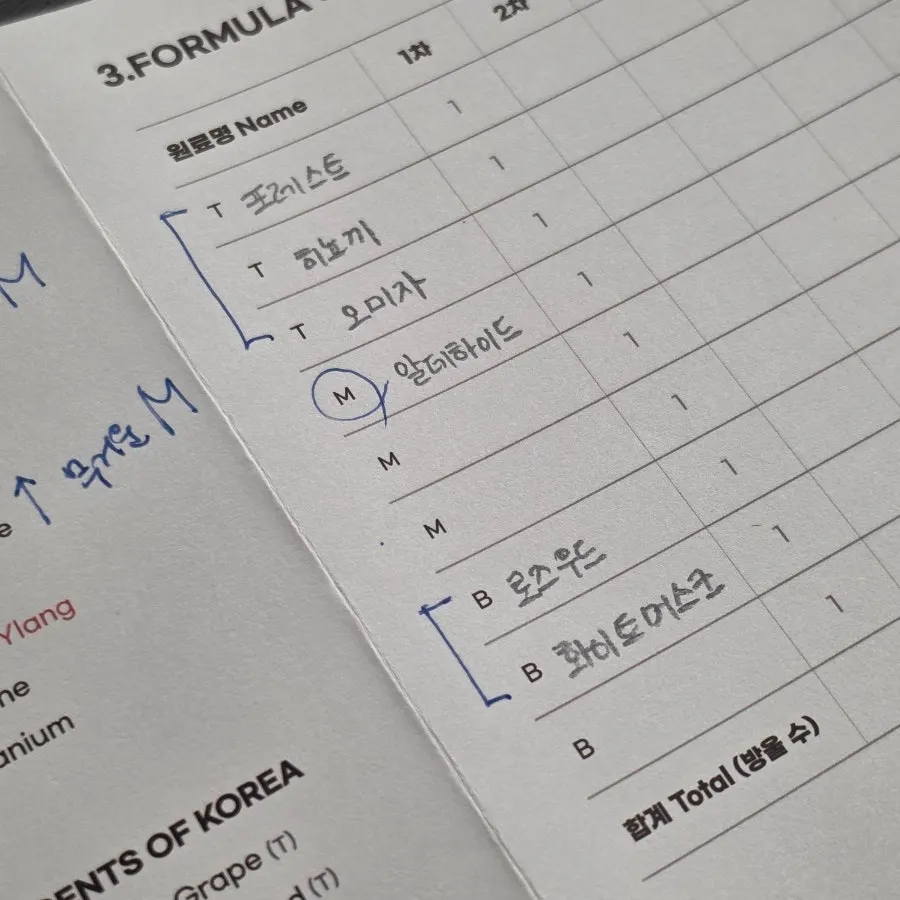 3.FORMULA
원료명 Name 1차 2차
T 포레스트 1
T 히노끼 1
T 오미자 1
M 알데하이드 1
M 1
M 1
B 로즈우드 1
B 화이트머스크 1
B 1
합계 Total (방울 수)
M
↑ 무거운 M
Ylang
OF KOREA
Grape (T)
(T)